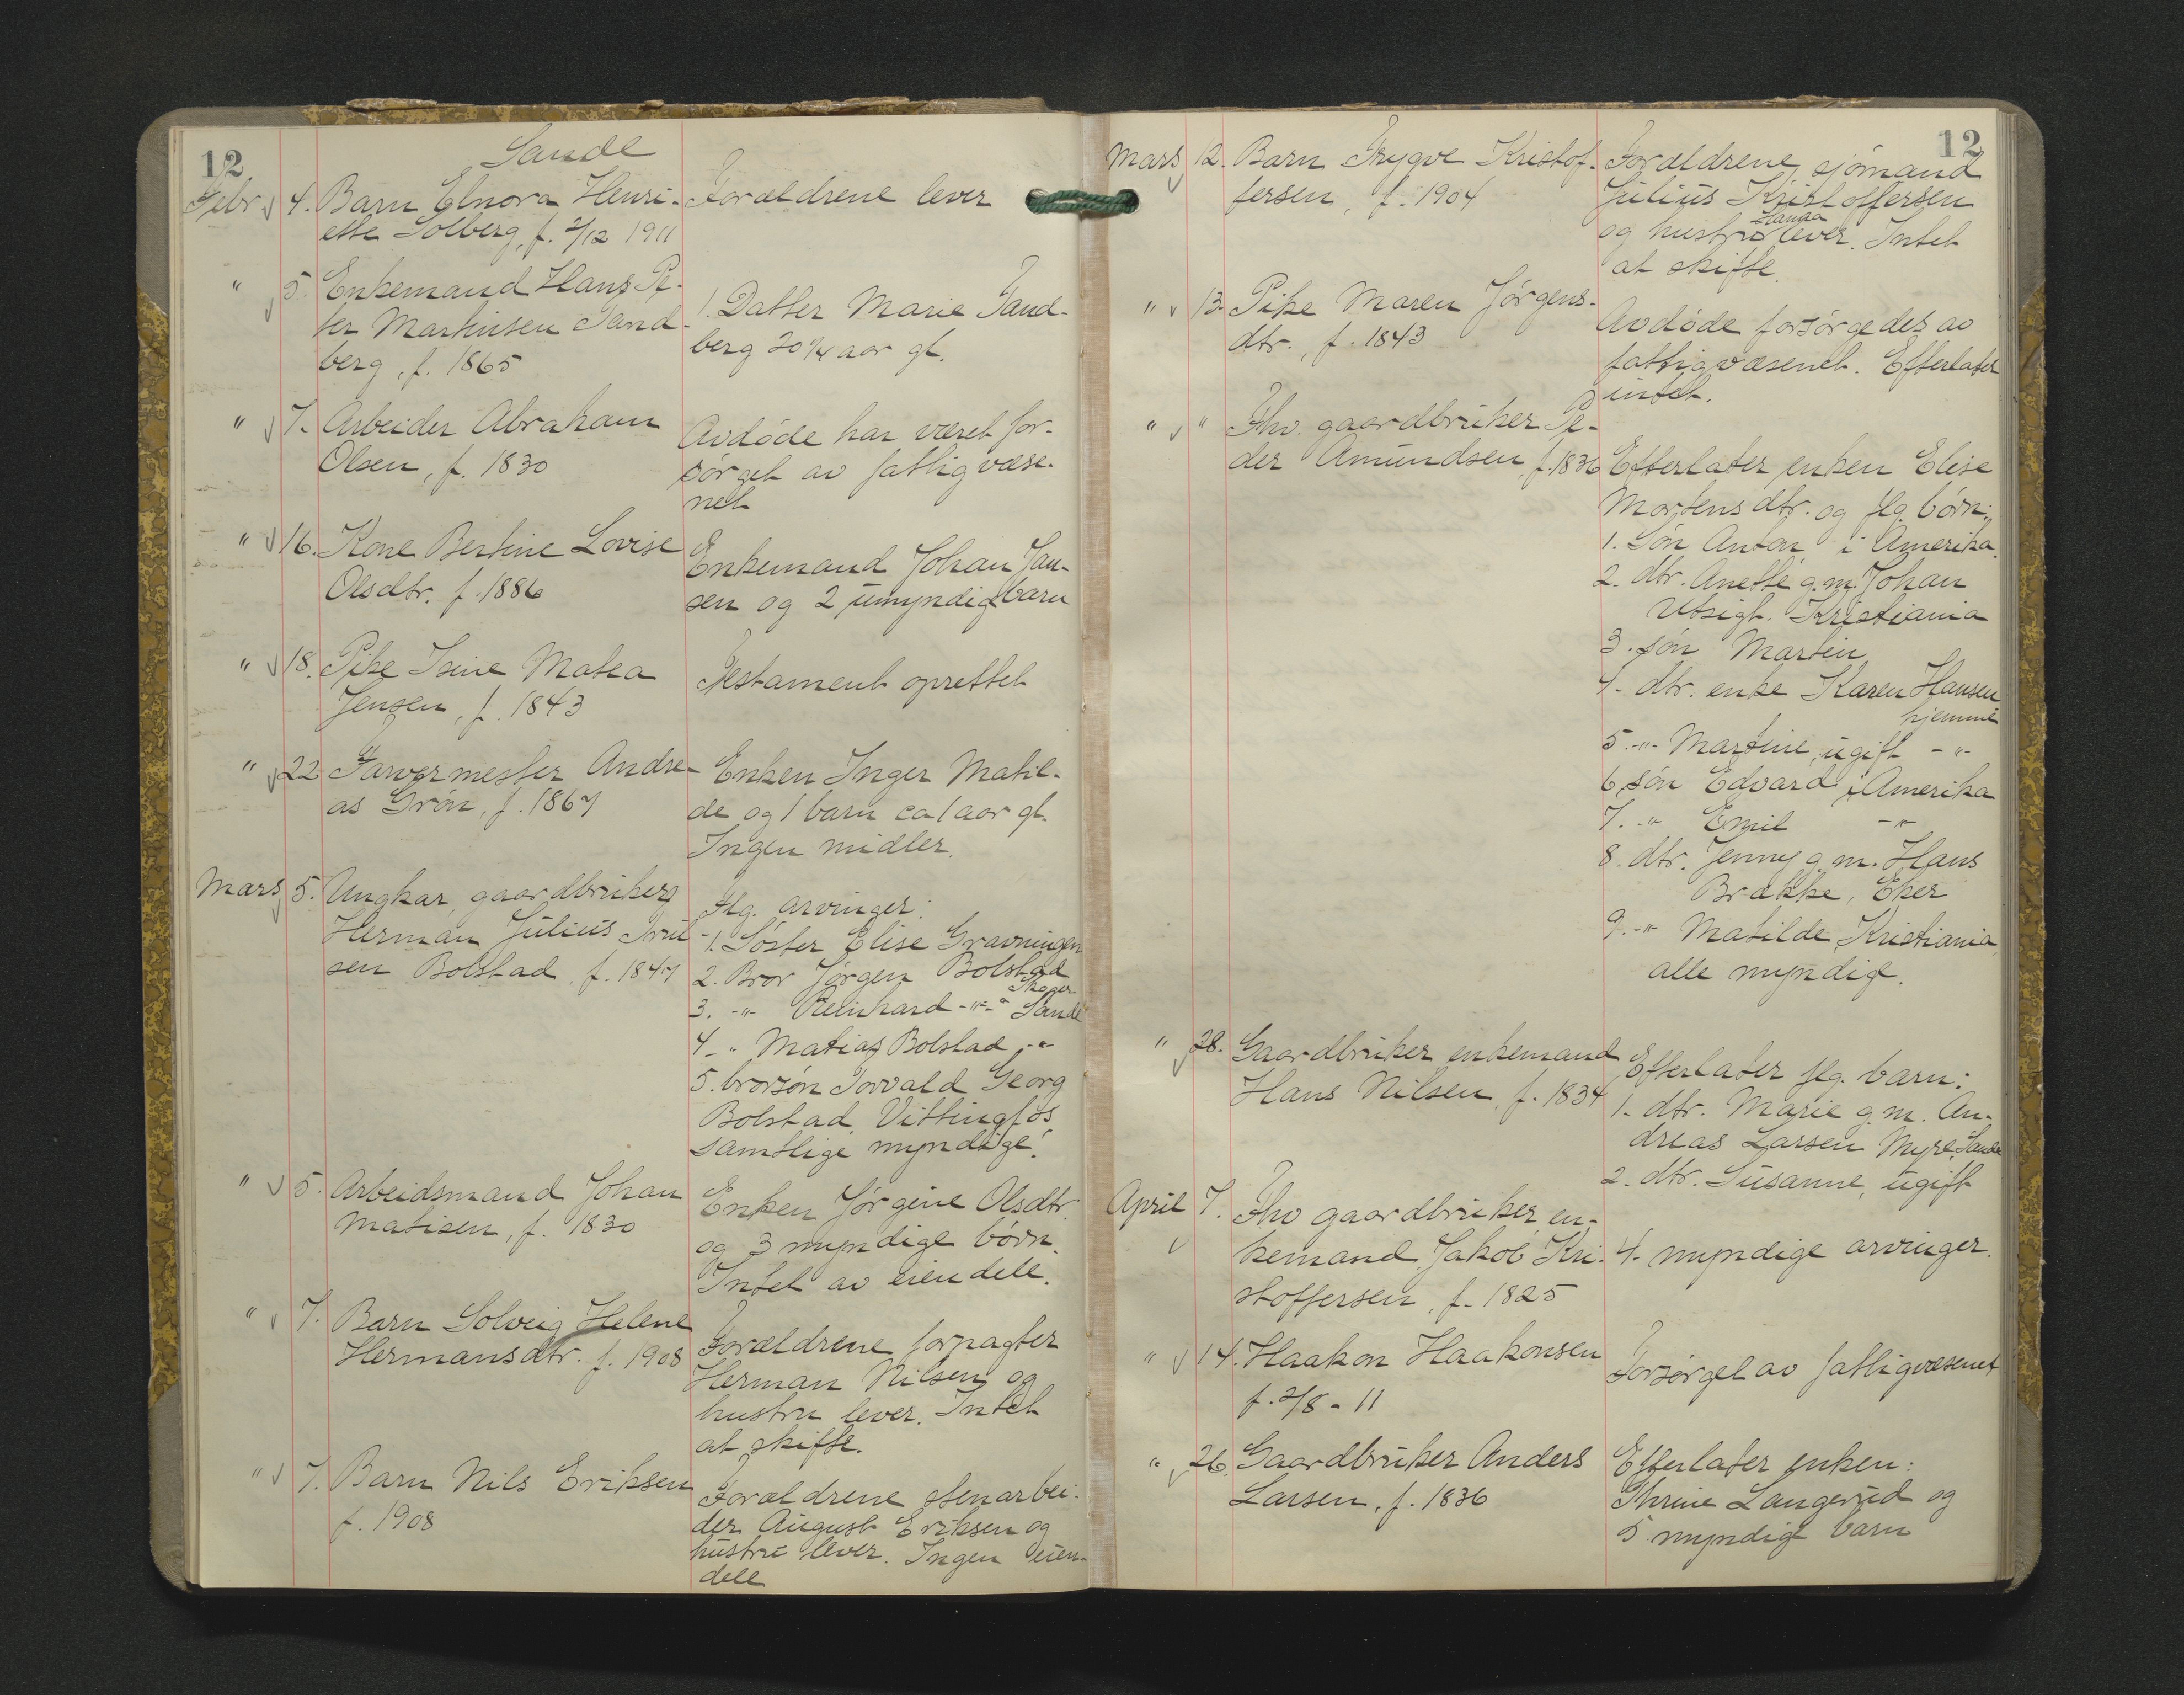 12
Sande
Febr. 4. Barn Elnora Henri-
ette Solberg, f. 2/12 1911
Forældrene lever
" 5. Enkemand Hans Pe-
ter Martinsen Sand-
berg, f. 1865
1. Datter Marie Sand-
berg 20 1/4 aar gl.
" 7. Arbeider Abraham
Olsen, f. 1830
Avdøde har været for-
sørget av fattigvæse-
net
" 16. Kone Bertine Lovise
Olsdtr. f. 1886
Enkemand Johan Jan-
sen og 2 umyndige barn
" 18. Pike Isine Matea
Jensen, f. 1843
Testament oprettet
" 22. Farvermester Andre-
as Grøn, f. 1867
Enken Inger Matil-
de og 1 barn ca 1 aar gl.
Ingen midler.
Mars 5. Ungkar, gaardbruker
Herman Julius Iver-
sen Bolstad, f. 1847
Flg. arvinger:
1. Søster Elise Gravningen
2. Bror Jørgen Bolstad
Skoger
3. -"- Reinhard -"- Sande
4. -"- Matias Bolstad -"-
5. brorsøn Torvald Georg
Bolstad, Vittingfos
samtlige myndige.
" 5. Arbeidsmand Johan
Matisen, f. 1830
Enken Jørgine Olsdtr.
og 3 myndige børn.
Intet av eiendele.
" 7. Barn Solveig Helene
Hermansdtr. f. 1908
Forældrene forpagter
Herman Nilsen og
hustru lever. Intet
at skifte.
" 7. Barn Nils Eriksen
f. 1908
Forældrene stenarbei-
der August Eriksen og
hustru lever. Ingen eien-
dele
12
Mars 12. Barn Trygve Kristof-
fersen, f. 1904
Forældrene, sjømand
Julius Kristoffersen
Hanna
og hustru lever. Intet
at skifte.
" 13. Pike Maren Jørgens-
dtr., f. 1843
Avdøde forsørgedes av
fattigvæsenet. Efterlater
intet.
" " Fhv. gaardbruker Pe-
der Amundsen, f. 1836
Efterlater enken Elise
Mortensdtr. og flg. børn:
1. Søn Anton i Amerika.
2. dtr. Anette g.m. Johan
Utsigt, Kristiania
3. søn Martin
4. dtr. enke Karen Hansen
hjemme
5. -"- Martine, ugift -"-
6. søn Edvard i Amerika
7. -"- Emil -"-
8. dtr. Jenny g.m. Hans
Brække, Eker
9. -"- Matilde, Kristiania,
alle myndige.
" 28. Gaardbruker enkemand
Hans Nilsen, f. 1834
Efterlater flg. barn:
1. dtr. Marie g.m. An-
dreas Larsen Myre, Sande
2. dtr. Susanne, ugift
April 7. Fhv gaardbruker en-
kemand Jakob Kri-
stoffersen, f. 1825
4. myndige arvinger.
" 14. Haakon Haakonsen
f. 2/8 - 11
Forsørget av fattigvæsenet
" 26. Gaardbruker Anders
Larsen, f. 1836
Efterlater enken:
Thrine Langerud og
5 myndige barn